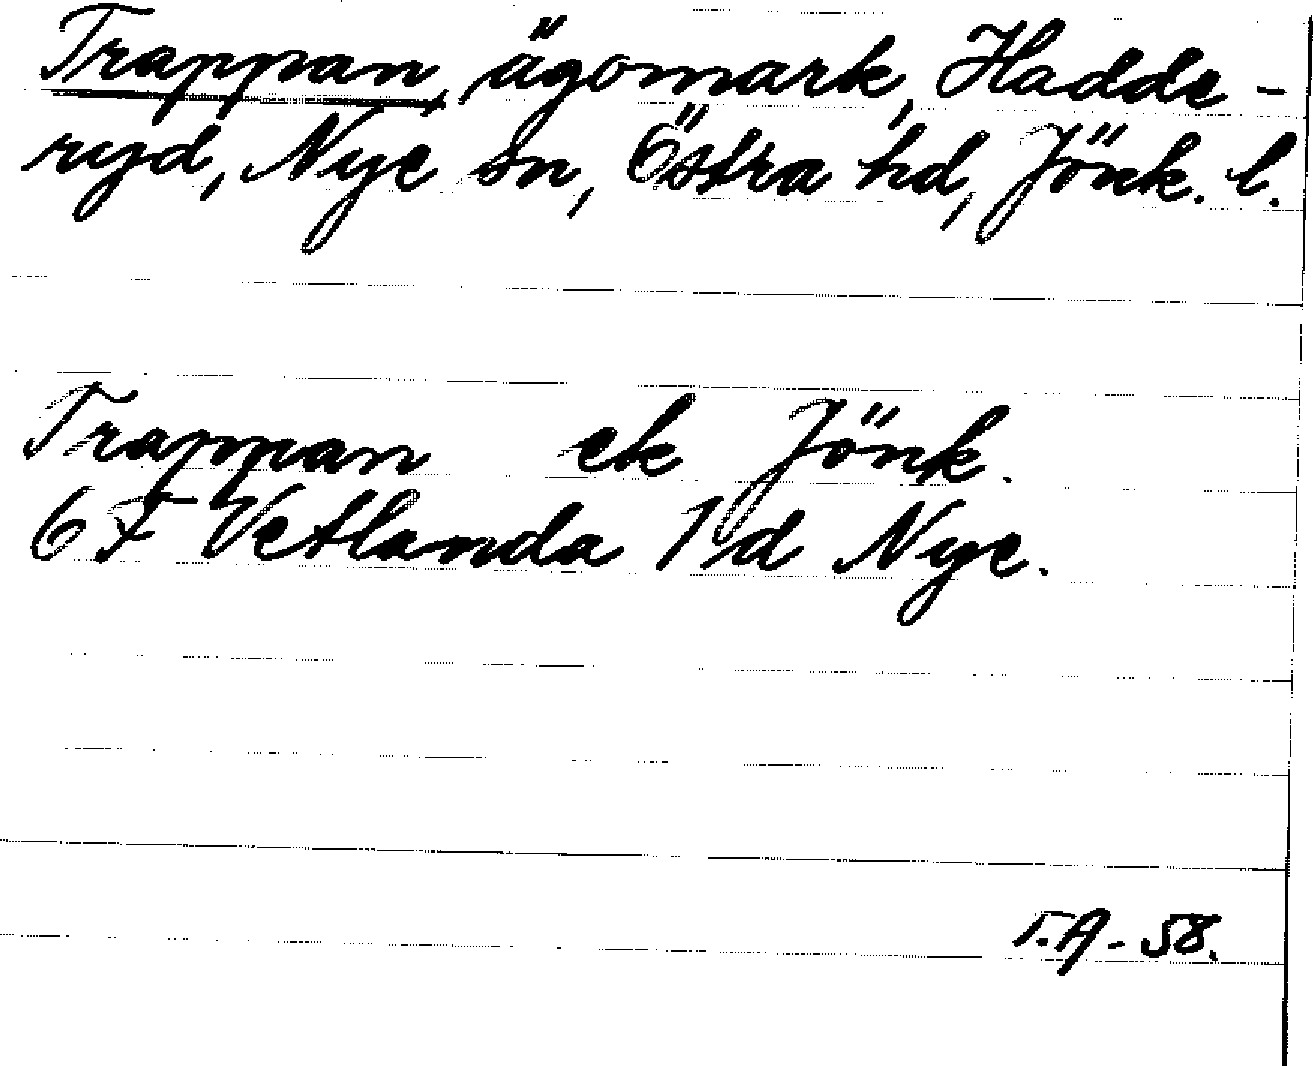 Trappan, ägomark, Hadde-
ryd, Nye sn, Östra hd, Jönk. l.
Trappan ek Jönk.
6F Vetlanda 1d Nye.
T.A-58.